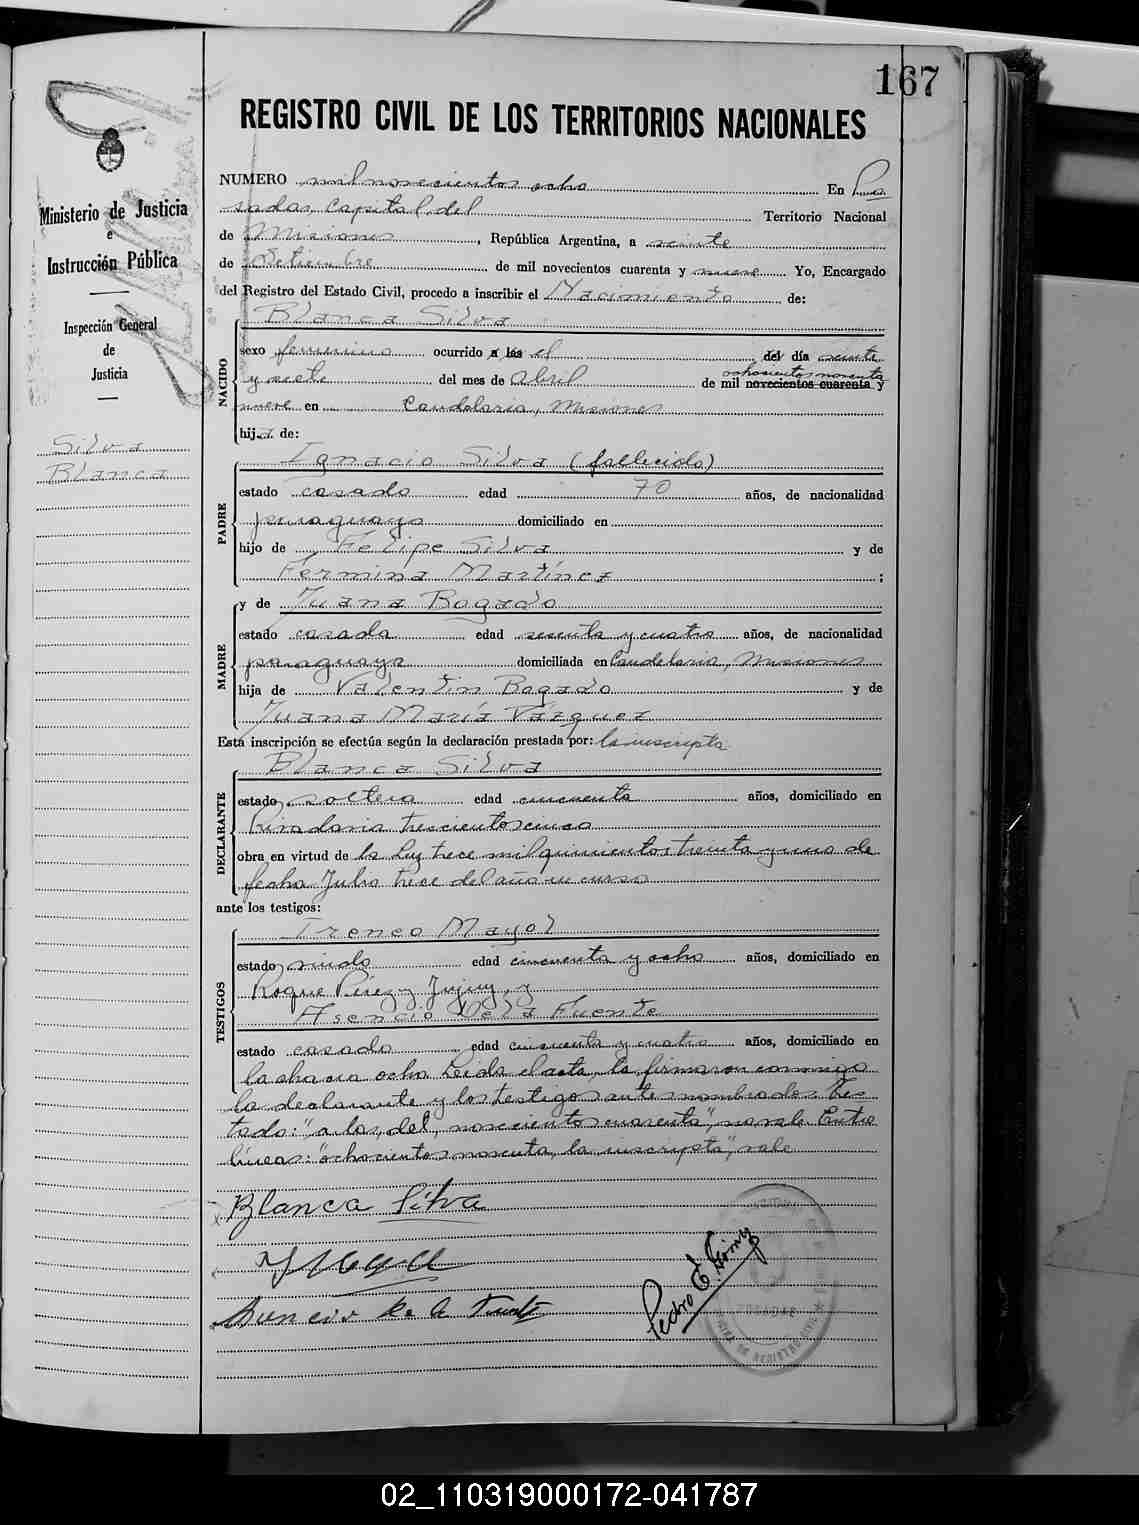 167
REGISTRO CIVIL DE LOS TERRITORIOS NACIONALES
Ministerio de Justicia
e
Instrucción Pública
Inspección General
de
Justicia
Silva
Blanca
NUMERO mil novecientos ocho En Po
sadas, Capital del Territorio Nacional
de Misiones, República Argentina, a veinte
de Setiembre de mil novecientos cuarenta y nueve Yo, Encargado
del Registro del Estado Civil, procedo a inscribir el Nacimiento de:
Blanca Silva
NACIDO
sexo femenino ocurrido a las el del día veinte
ochocientos noventa
y siete del mes de Abril de mil novecientos cuarenta y
nueve en Candelaria, Misiones
hija de:
Ignacio Silva (fallecido)
PADRE
estado casado edad 70 años, de nacionalidad
paraguayo domiciliado en
hijo de Felipe Silva y de
Fermina Martínez ;
y de Juana Bogado
MADRE
estado casada edad sesenta y cuatro años, de nacionalidad
paraguaya domiciliada en Candelaria, Misiones
hija de Valentín Bogado y de
Juana María Vázquez
Esta inscripción se efectúa según la declaración prestada por: la inscripta
Blanca Silva
DECLARANTE
estado soltera edad cincuenta años, domiciliado en
Rivadavia trescientos cinco
obra en virtud de la Ley trece mil quinientos treinta y uno de
fecha Julio trece del año en curso
ante los testigos:
Ireneo Mayol
TESTIGOS
estado viudo edad cincuenta y ocho años, domiciliado en
Roque Pérez y Jujuy, y
Asencio De la Fuente
estado casado edad cincuenta y cuatro años, domiciliado en
la chacra ocho. Leida el acta, la firmaron conmigo
la declarante y los testigos antes nombrados. Tes
tado: "a las, del, novecientos cuarenta", no vale. Entre
líneas: "ochocientos noventa, la inscripta", vale
Blanca Silva
Asencio de la Fuente
Pedro E.
POSADAS
02_110319000172-041787